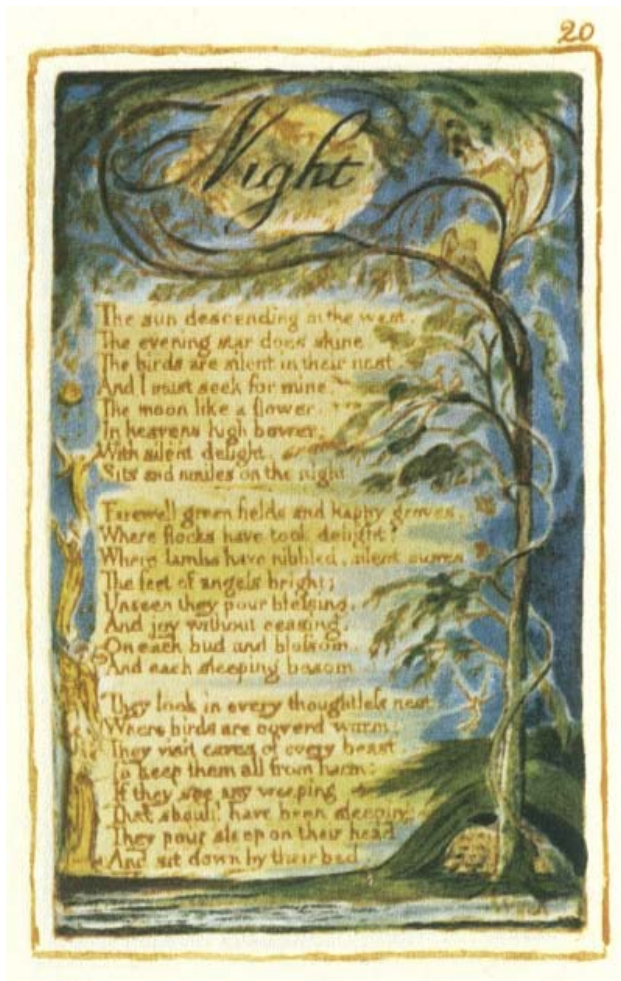 20
Night
The sun descending in the west.
The evening star does shine.
The birds are silent in their nest.
And I must seek for mine.
The moon like a flower,
In heavens high bower;
With silent delight,
Sits and smiles on the night.
Farewell green fields and happy groves,
Where flocks have took delight;
Where lambs have nibbled, silent moves
The feet of angels bright;
Unseen they pour blessing,
And joy without ceasing,
On each bud and blossom,
And each sleeping bosom.
They look in every thoughtless nest,
Where birds are coverd warm;
They visit caves of every beast,
To keep them all from harm:
If they see any weeping,
That should have been sleeping
They pour sleep on their head
And sit down by their bed.